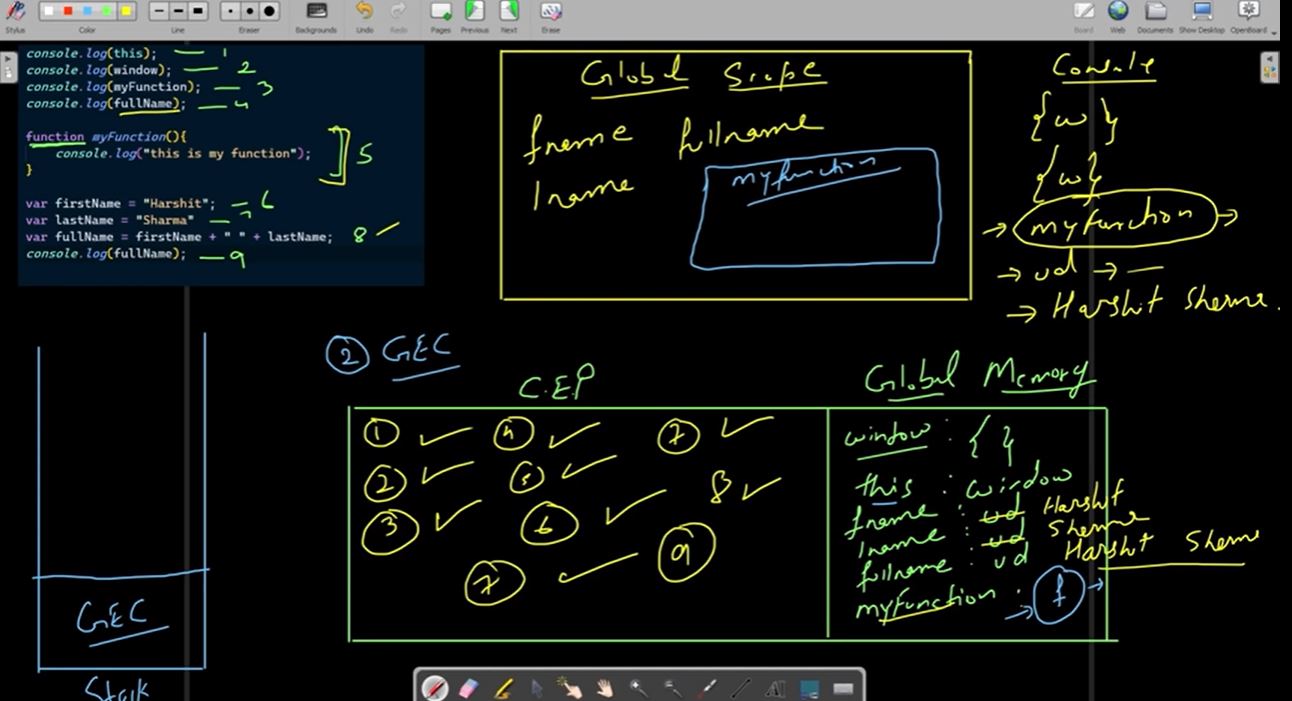 Stylus Color Line Eraser Backgrounds Undo Redo Pages Previous Next Erase Board Web Documents Show Desktop OpenBoard
console.log(this); 1
console.log(window); 2
console.log(myFunction); 3
console.log(fullName); 4
function myFunction(){
console.log("this is my function"); 5
}
var firstName = "Harshit"; 6
var lastName = "Sharma" 7
var fullName = firstName + " " + lastName; 8
console.log(fullName); 9
Global Scope
fname fullname
lname
myfunction
Console
{w}
{w}
myfunction
ud
Harshit Sharma.
2 GEC
C.E.P
1 4 7
2 5 8
3 6 9
7
Global Memory
window : { }
this : window
fname : ud Harshit
lname : ud Sharma
fullname : ud Harshit Sharma
myfunction : f
GEC
Stack